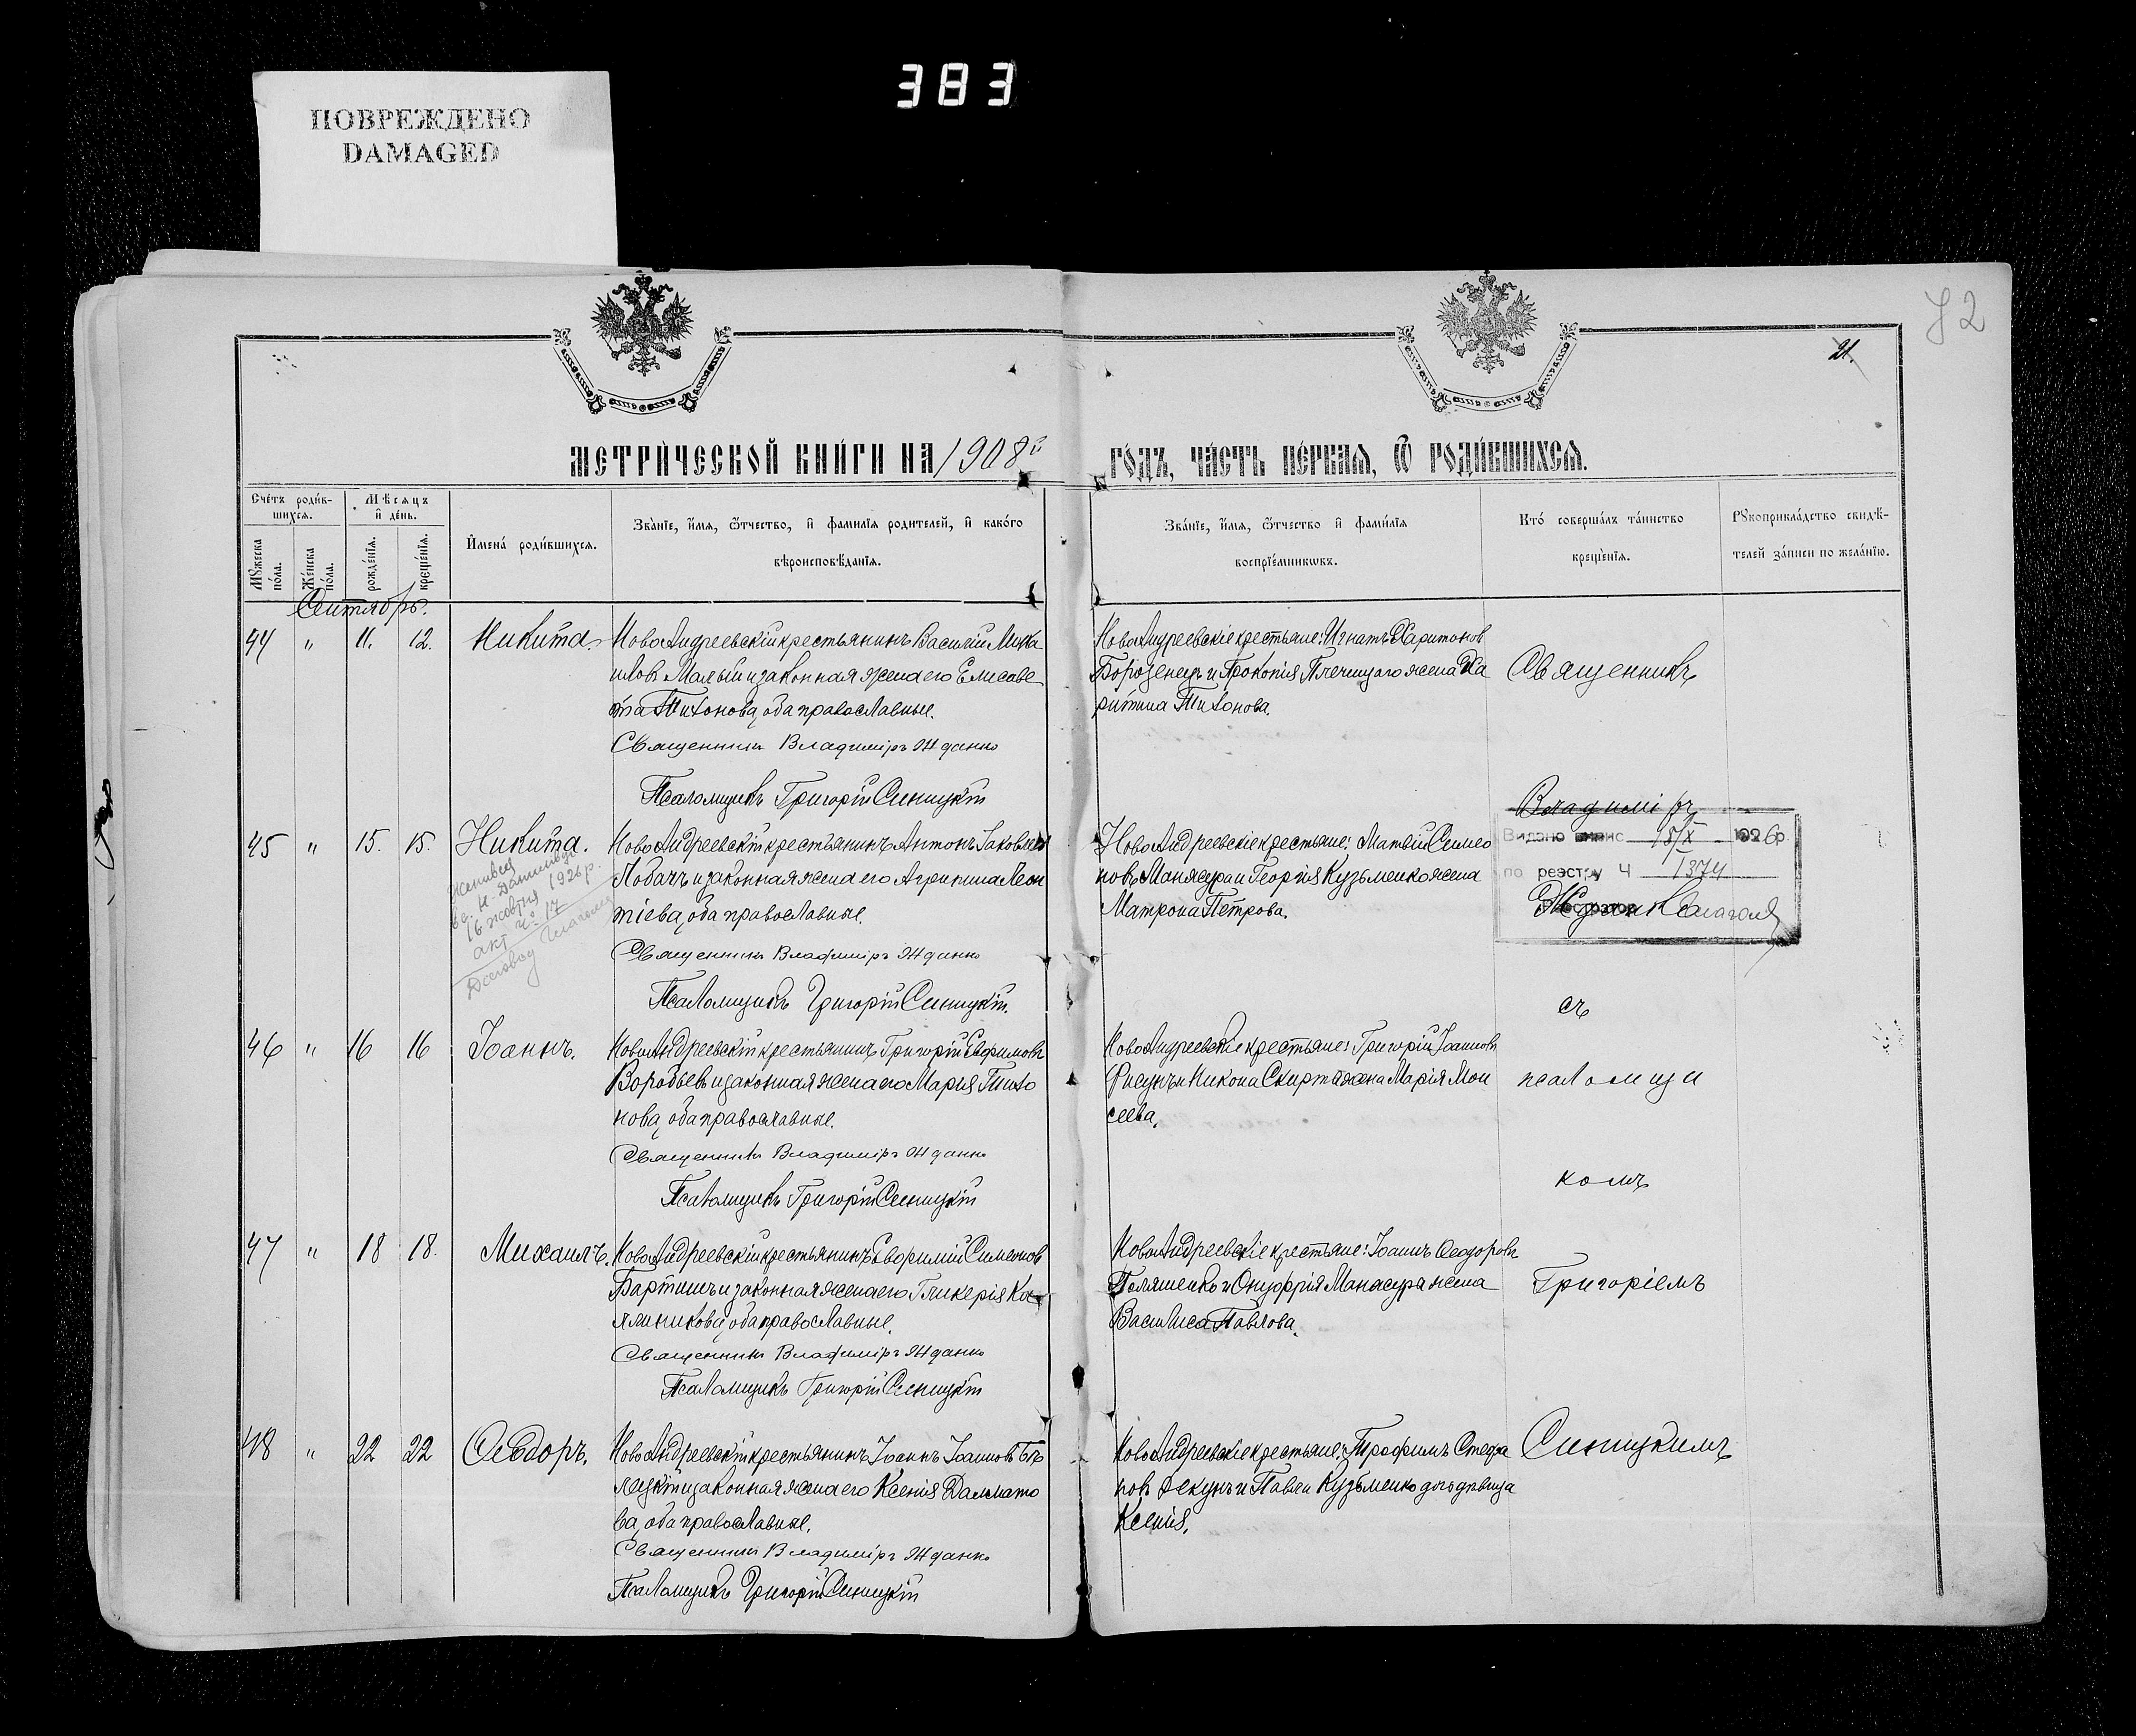 383
ПОВРЕЖДЕНО
DAMAGED
72
21.
МЕТРИ́ЧЕСКОЙ КНИ́ГИ НА 1908й ГО́ДЪ, ЧА́СТЬ ПЕ́РВАЯ, Ѿ РОДИ́ВШИХСЯ.
Сче́тъ роди́в-
шихся.
Му́жеска по́ла.
Же́нска по́ла.
Мѣ́сяцъ
и҆ де́нь.
рожде́нїя.
креще́нїя.
И҆мена́ роди́вшихся.
Зва́нїе, и҆́мя, ѻ҆́тчество, и҆ фами́лїя роди́телей, и҆ како́го
вѣроисповѣ́данїя.
Зва́нїе, и҆́мя, ѻ҆́тчество и҆ фами́лїя
воспрїе́мниковъ.
Кто̀ соверша́лъ та́инство
креще́нїя.
Рꙋкоприкла́дство свидѣ́-
телей за́писи по жела́нїю.
Сентябрь.
44 " 11. 12. Никита.
НовоАндреевскій крестьянинъ Василій Миха
иловъ Малый и законная жена его Елисаве
та Тихонова, оба православные.
Священникъ Владиміръ Жданко
Псаломщикъ Григорій Синицкій
НовоАндреевскіе крестьяне: Игнатъ Харитонов
Бороденецъ и Прокопія Плечицаго жена Ха
ритина Тихонова.
Священникъ
Владиміръ
45 " 15. 15. Никита.
16 жовтня 1926 р.
акт ч. 17
НовоАндреевскій крестьянинъ Антонъ Іаковлевъ
Лобачъ и законная жена его Агрипина Леон
тіева, оба православные.
Священникъ Владиміръ Жданко
Псаломщикъ Григорій Синицкій.
НовоАндреевскіе крестьяне: Матвій Симео
новъ Манжура и Георгія Кузьменко жена
Матрона Петрова.
Видано випис 15/X 1926 р.
по реэстру Ч 1374
съ
46 " 16 16 Іоаннъ.
НовоАндреевскій крестьянинъ Григорій Евфимовъ
Воробьевъ и законная жена его Марія Тихо
нова, оба православные.
Священникъ Владиміръ Жданко
Псаломщикъ Григорій Синицкій
НовоАндреевскіе крестьяне: Григорій Іоанновъ
Фисунъ и Никона Скирта жена Марія Мои
сеева.
псаломщи
комъ
47 " 18 18. Михаилъ.
НовоАндреевскій крестьянинъ Евфимій Симеонов
Бартишъ и законная жена его Гликерія Ка
линикова, оба православные.
Священникъ Владиміръ Жданко
Псаломщикъ Григорій Синицкій
НовоАндреевскіе крестьяне: Іоаннъ Ѳеодоровъ
Геляшенко и Онуфрія Манжура жена
Василиса Павлова.
Григоріемъ
48 " 22 22 Ѳеодоръ.
НовоАндреевскій крестьянинъ Іоаннъ Іоанновъ Бѣ
лецкій и законная жена его Ксенія Далмато
ва, оба православные.
Священникъ Владиміръ Жданко
Псаломщикъ Григорій Синицкій
НовоАндреевскіе крестьяне: Трофимъ Стефа
новъ Рекунъ и Павла Кузьменко дочь дѣвица
Ксенія.
Синицкимъ